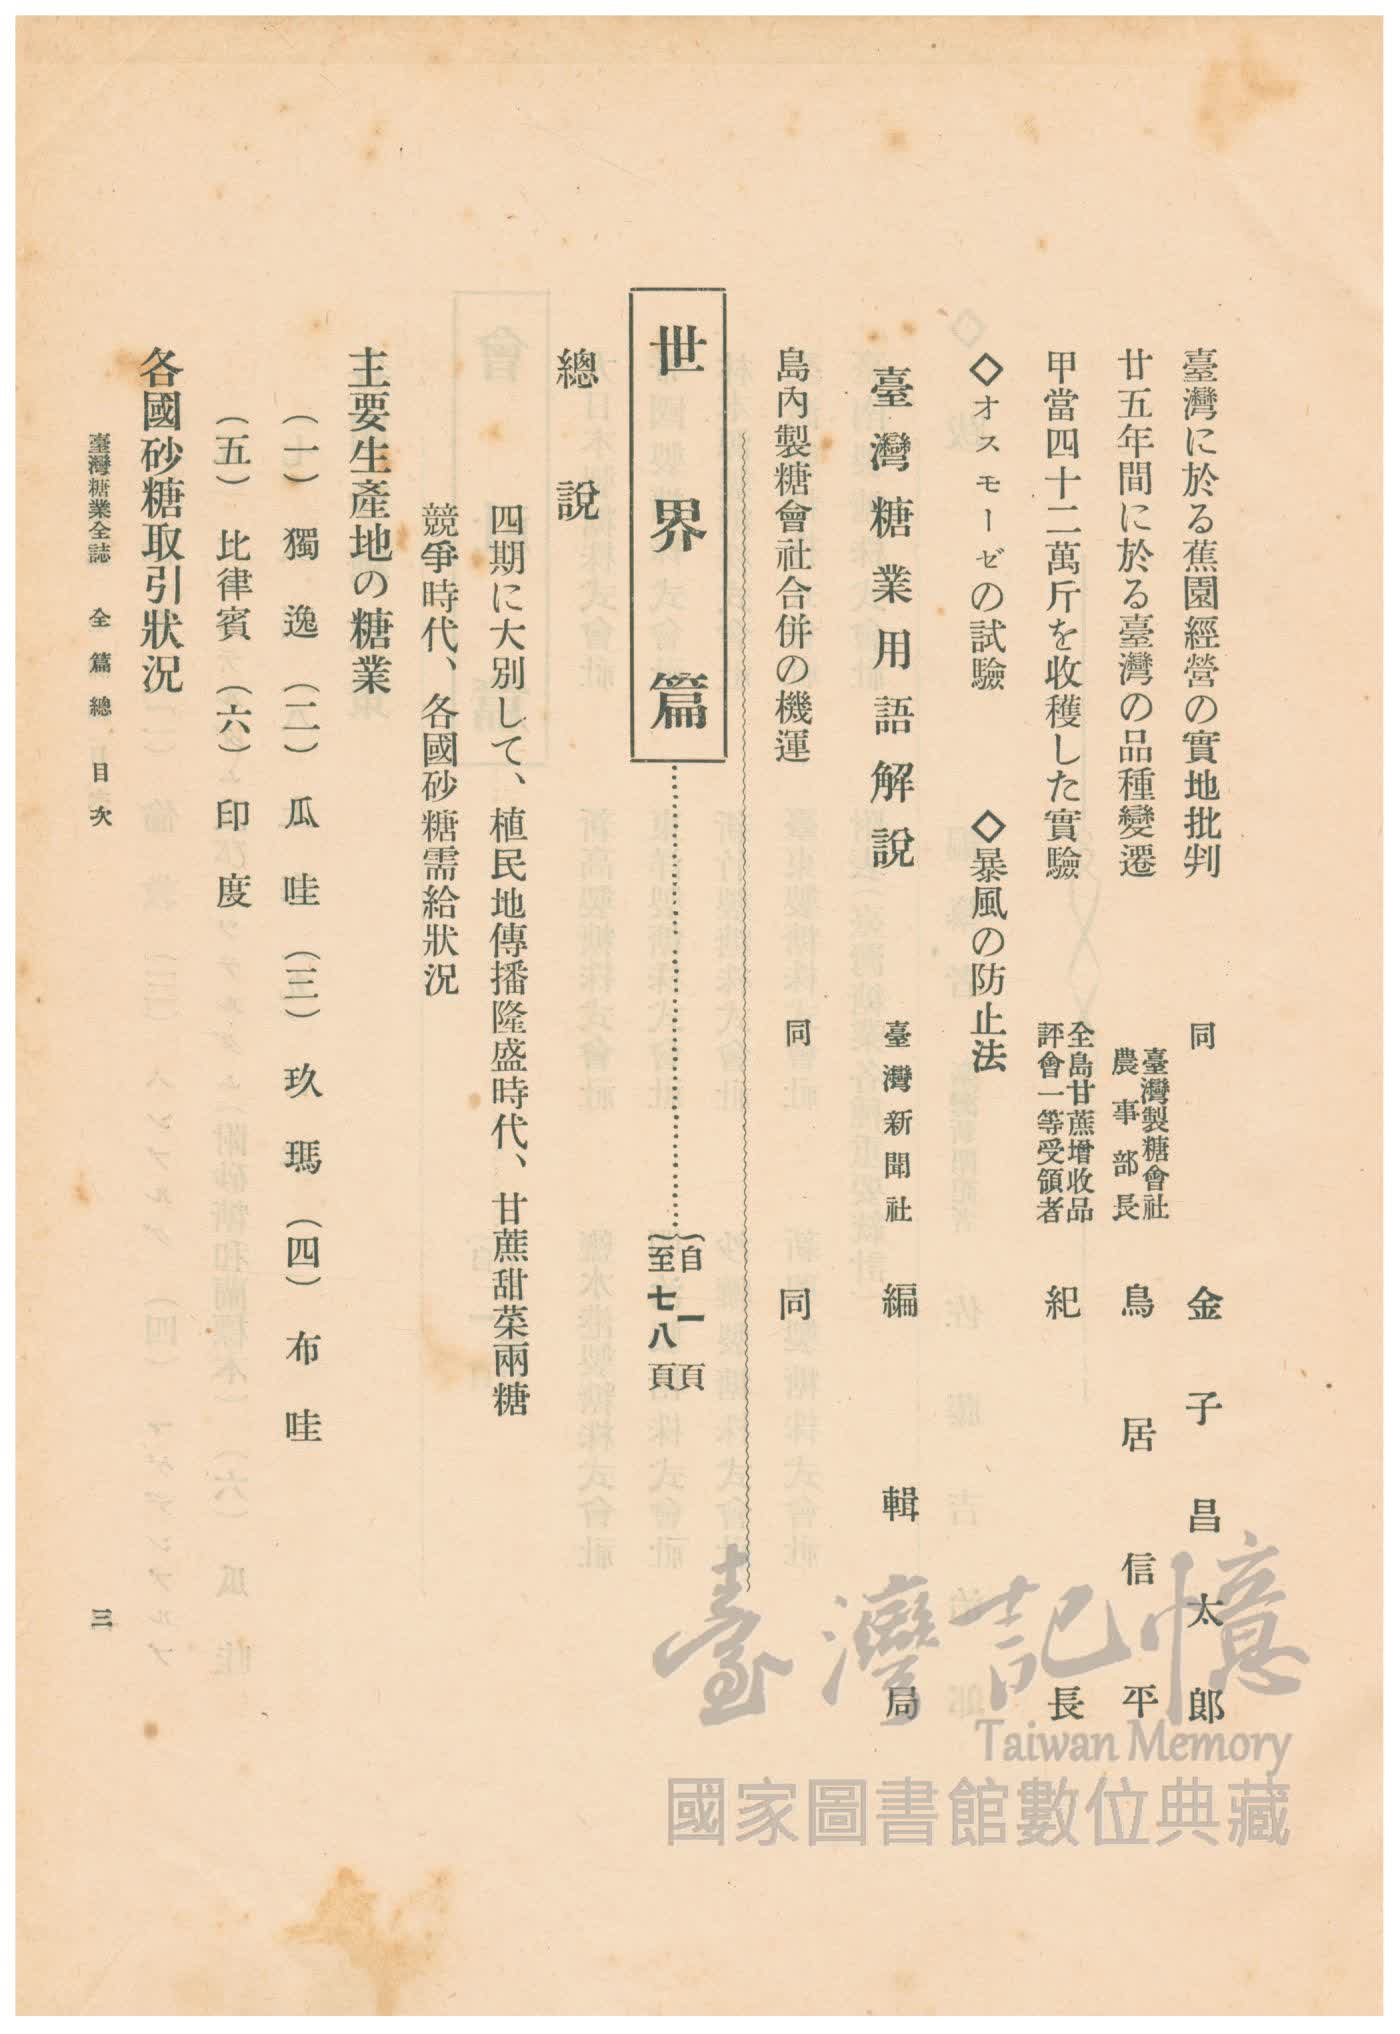 臺灣に於る蕉園經營の實地批判　同　金子昌太郎
廿五年間に於る臺灣の品種變遷　臺灣製糖會社農事部長　鳥居信平
甲當四十二萬斤を收穫した實驗　全島甘蔗增收品評會一等受領者　紀長
◇オスモーゼの試驗　◇暴風の防止法
臺灣糖業用語解說　臺灣新聞社　編輯局
島內製糖會社合併の機運　同　同
世界篇……（自一頁 至七八頁
總說
四期に大別して、植民地傳播隆盛時代、甘蔗甜菜兩糖
競爭時代、各國砂糖需給狀況
主要生產地の糖業
（一）獨逸（二）瓜哇（三）玖瑪（四）布哇
（五）比律賓（六）印度
各國砂糖取引狀況
臺灣糖業全誌　全篇總目次
三
臺灣記憶
Taiwan Memory
國家圖書館數位典藏